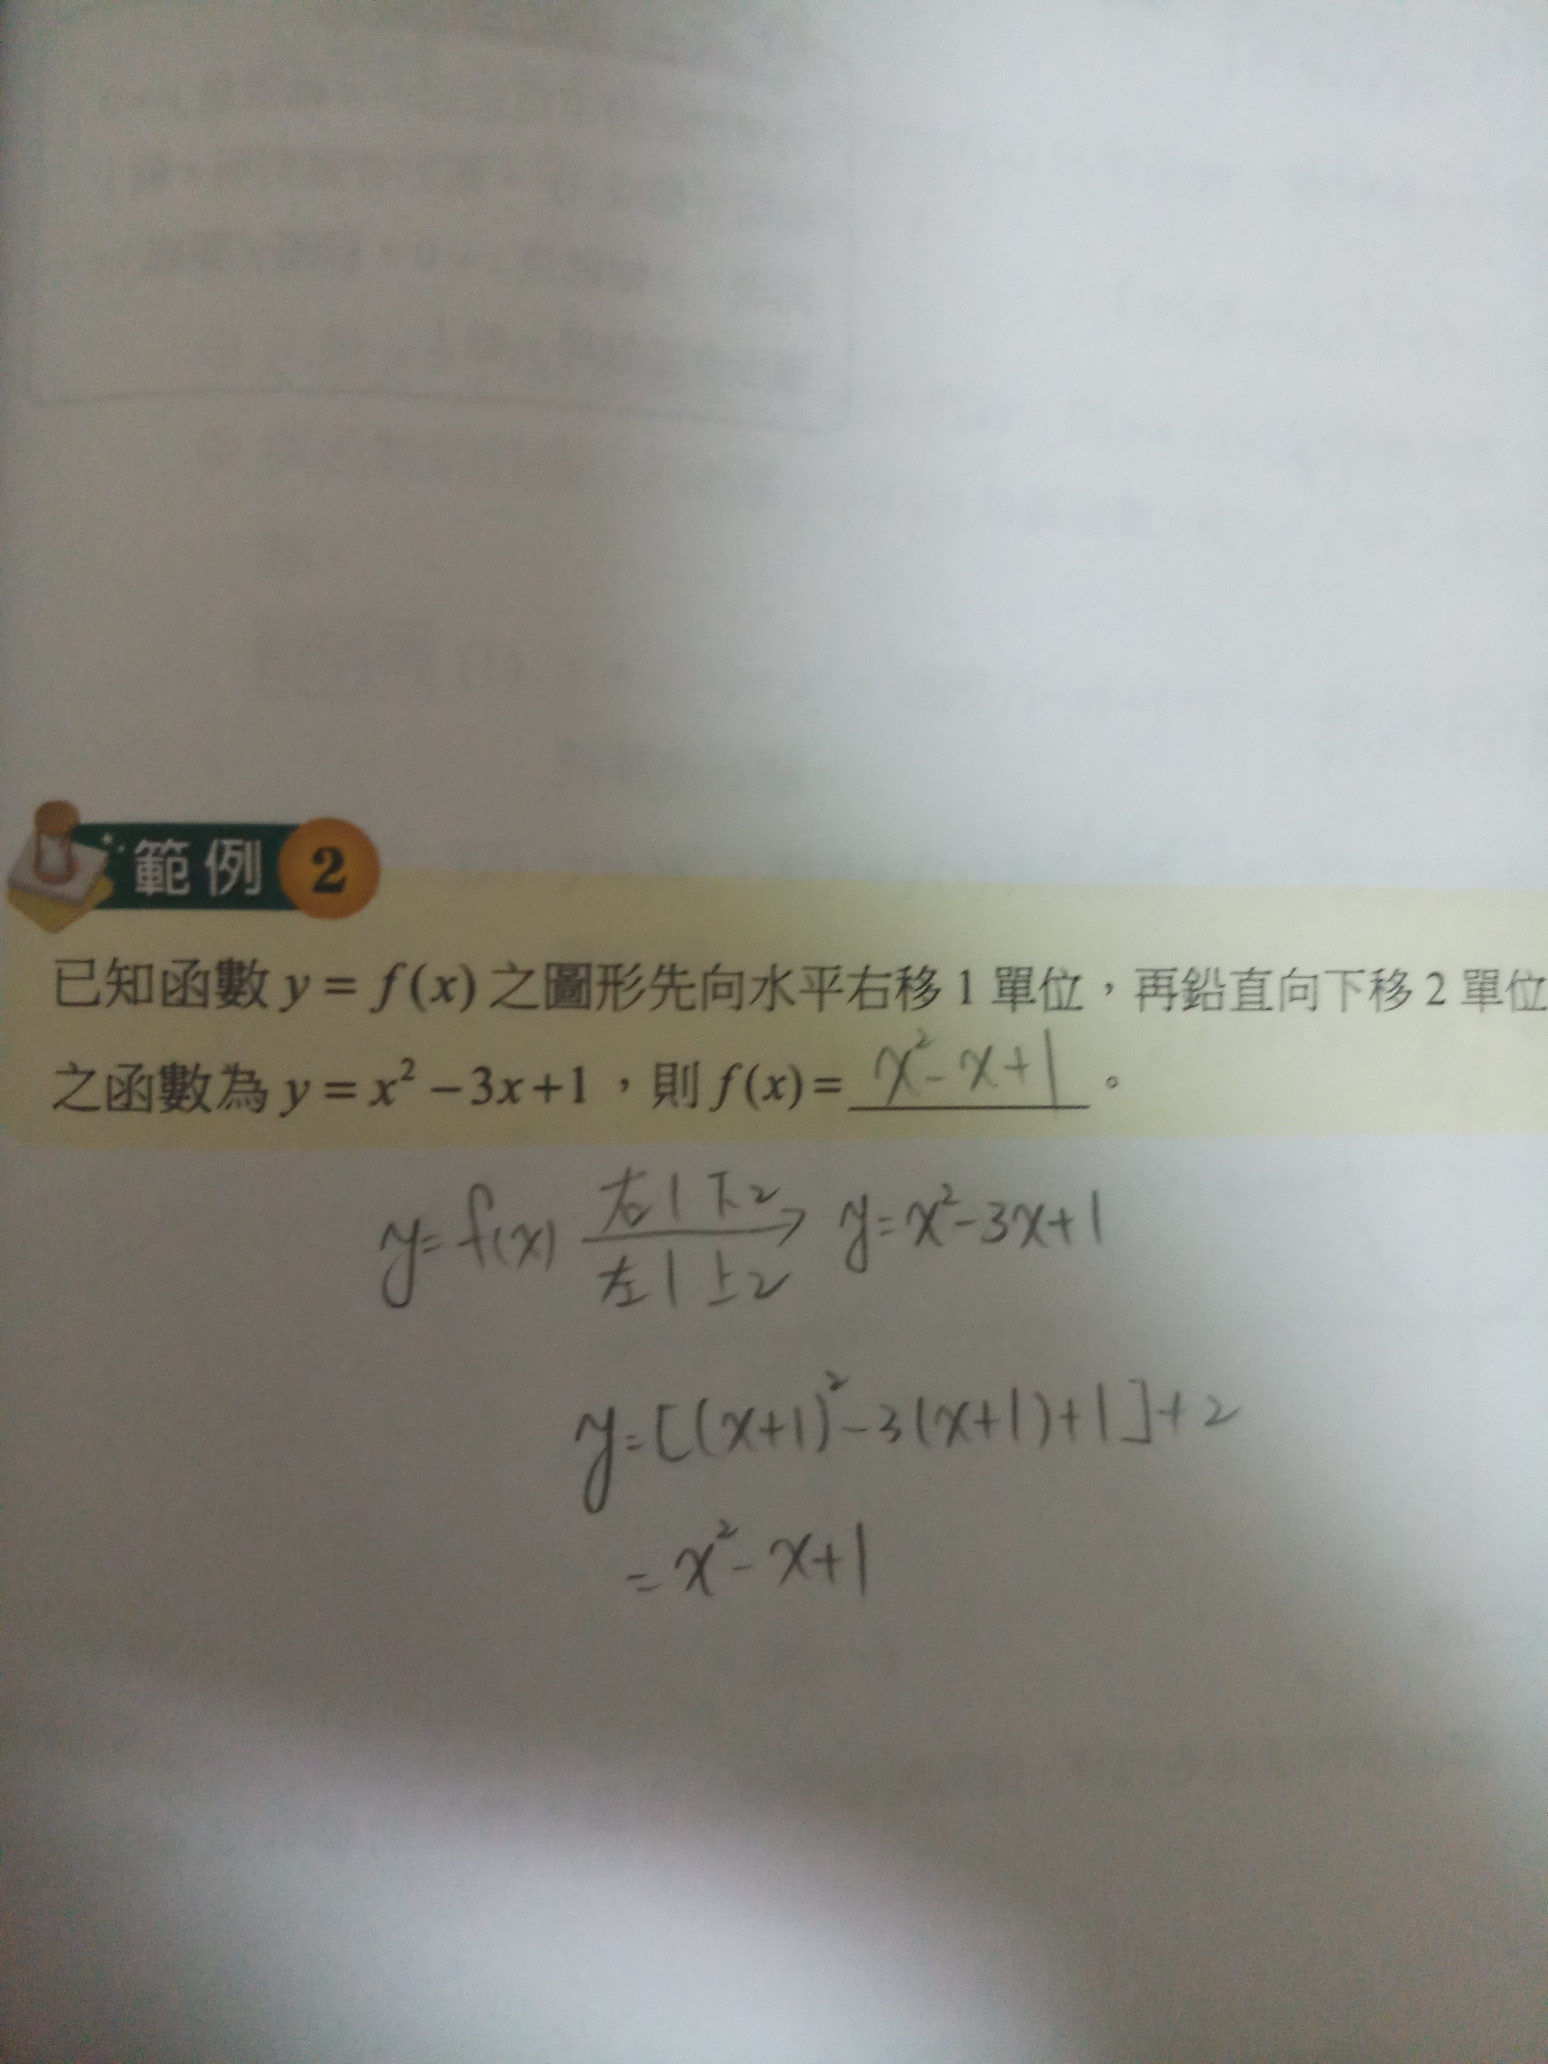 範例 2
已知函數 y = f(x) 之圖形先向水平右移 1 單位，再鉛直向下移 2 單位
之函數為 y = x² − 3x + 1，則 f(x) = x² - x + 1 。
y = f(x) 右1下2 y = x² - 3x + 1
左1上2
y = [(x+1)² - 3(x+1) + 1] + 2
= x² - x + 1